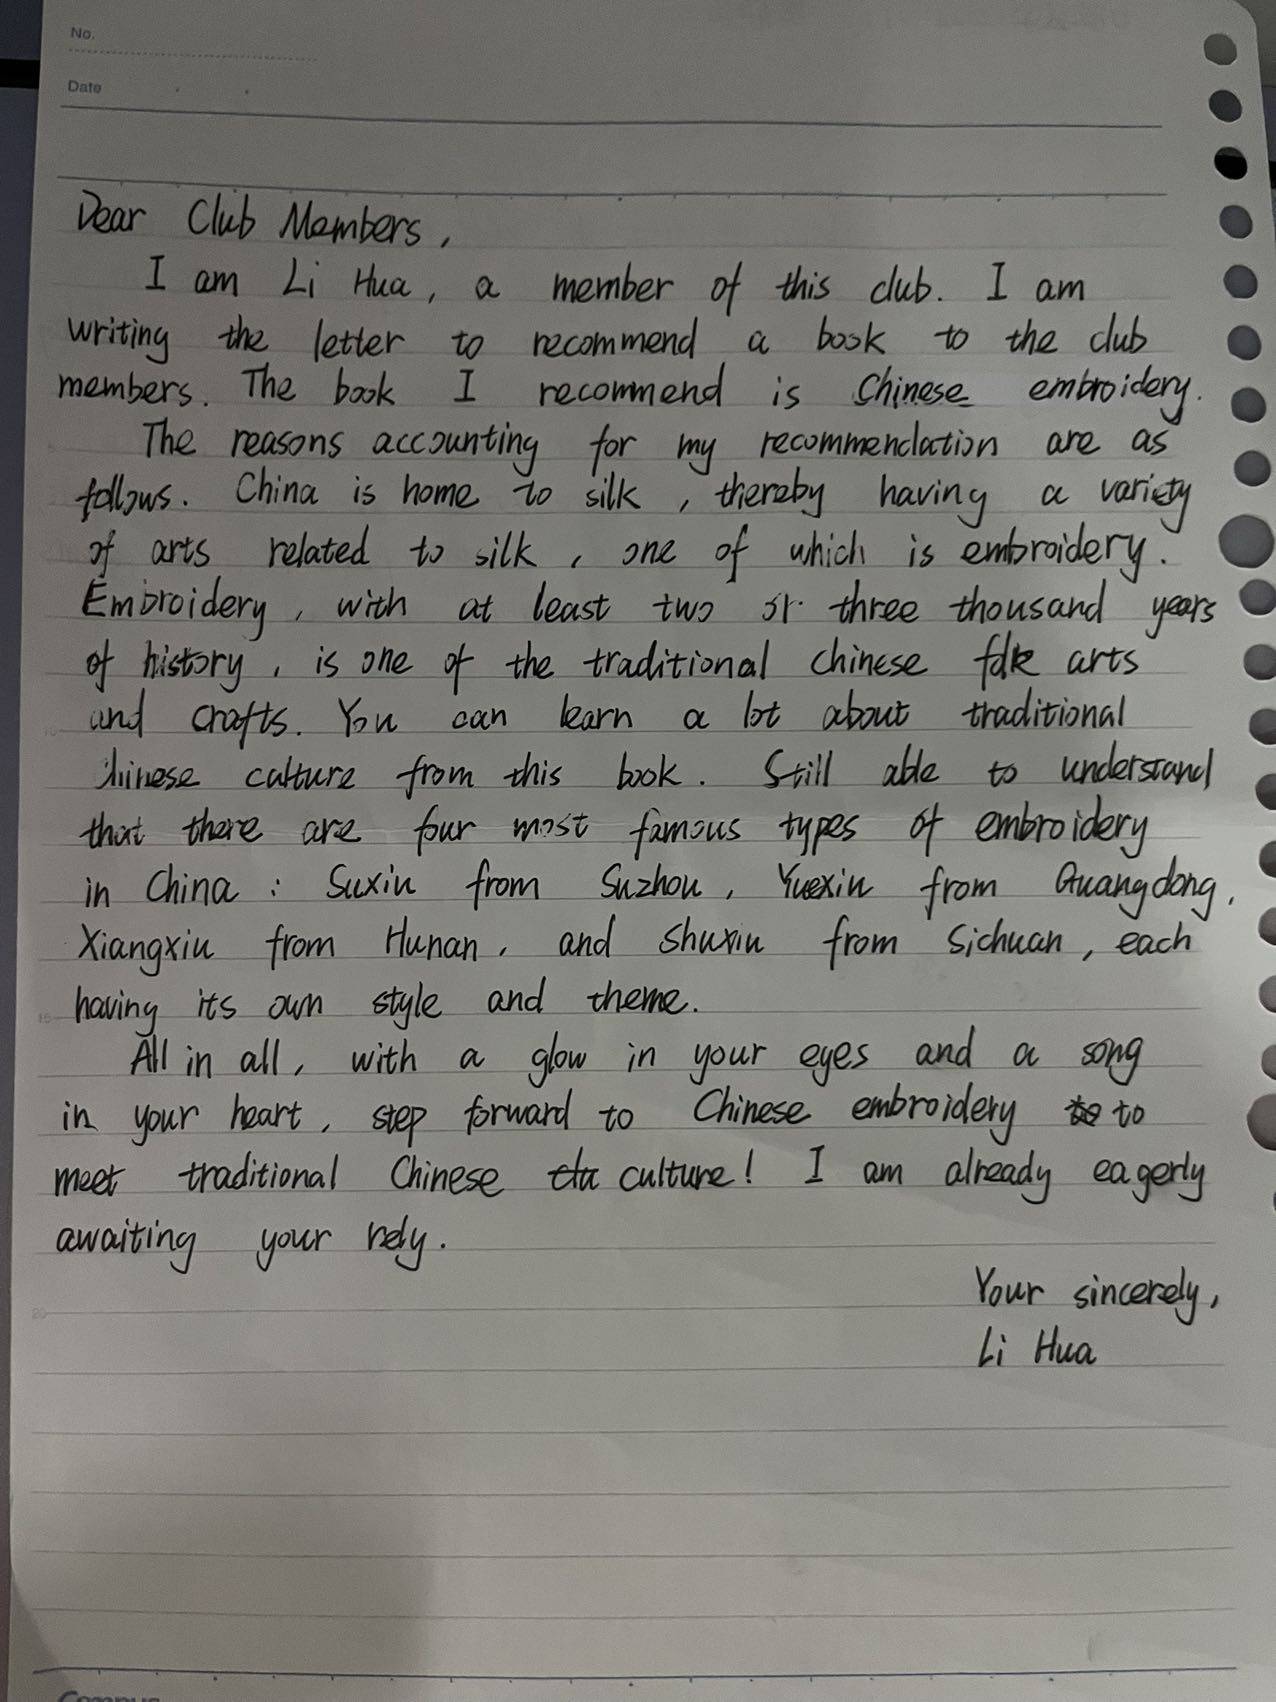 No.
Date
Dear Club Members,
I am Li Hua, a member of this club. I am
writing the letter to recommend a book to the club
members. The book I recommend is Chinese embroidery.
The reasons accounting for my recommendation are as
follows. China is home to silk, thereby having a variety
of arts related to silk, one of which is embroidery.
Embroidery, with at least two or three thousand years
of history, is one of the traditional chinese folk arts
and crafts. You can learn a lot about traditional
chinese culture from this book. Still able to understand
that there are four most famous types of embroidery
in China: Suxiu from Suzhou, Yuexiu from Guangdong,
Xiangxiu from Hunan, and Shuxiu from Sichuan, each
having its own style and theme.
All in all, with a glow in your eyes and a song
in your heart, step forward to Chinese embroidery to
meet traditional Chinese culture! I am already eagerly
awaiting your rely.
Your sincerely,
Li Hua
15
20
Campus